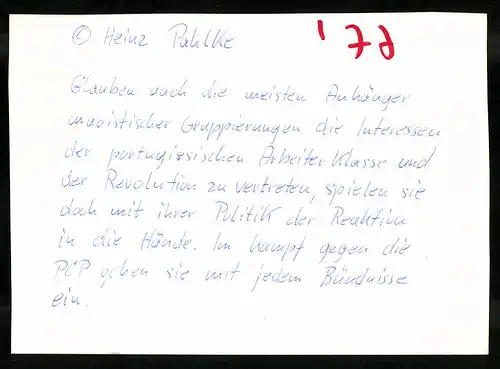 © Heinz Pahlke
Glauben auch die meisten Anhänger
maoistischer Gruppierungen die Interessen
der portugisischen Arbeiterklasse und
der Revolution zu vertreten, spielen sie
doch mit ihrer Politik der Reaktion
in die Hände. Im kampf gegen die
PCP gehen sie mit jedem Bündnisse
ein.